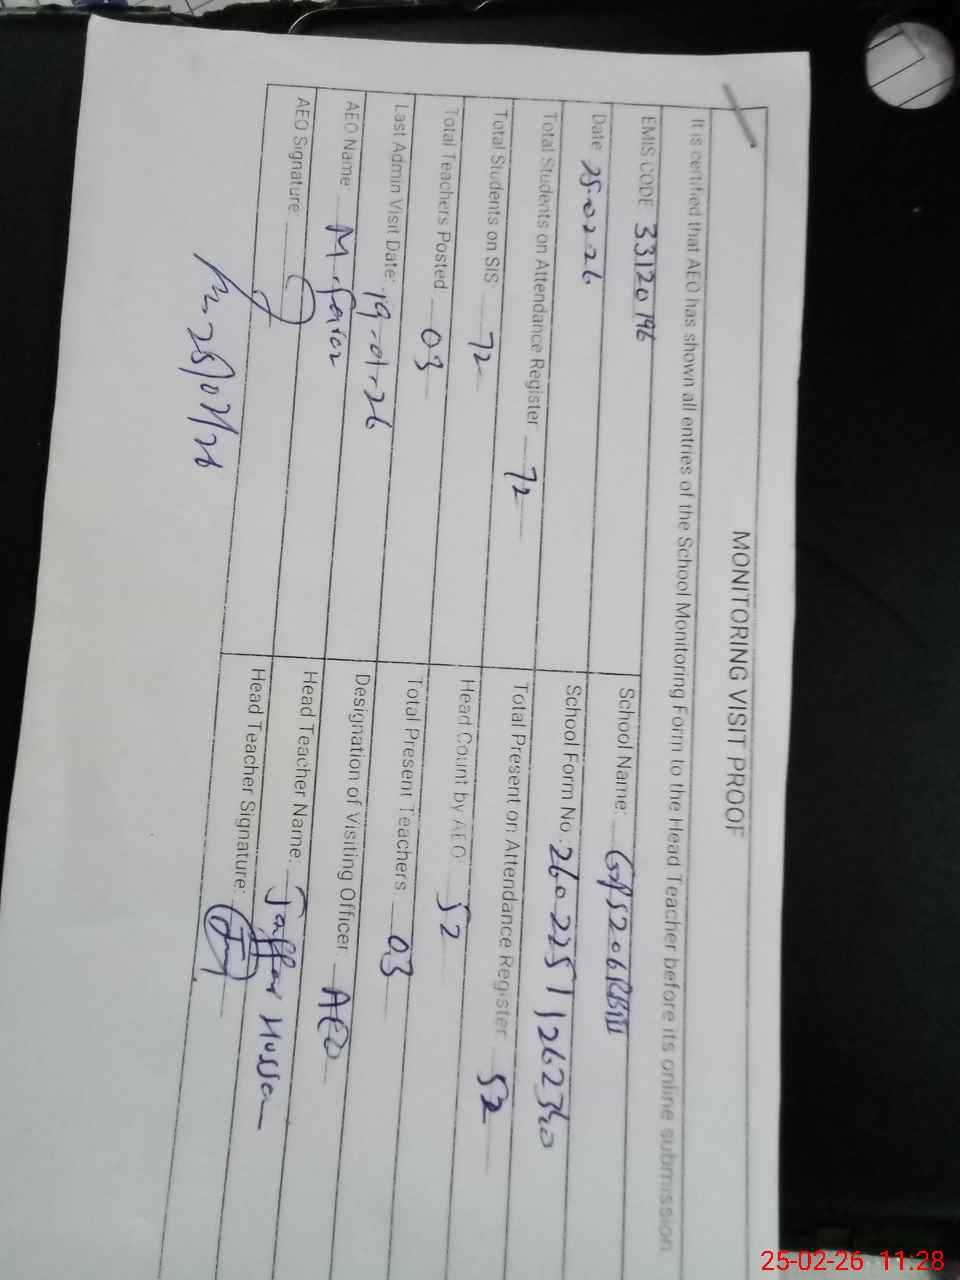 MONITORING VISIT PROOF
It is certified that AEO has shown all entries of the School Monitoring Form to the Head Teacher before its online submission.
EMIS CODE 33120196 School Name: GPS 206 RB III
Date 25-02-26 School Form No: 26022511262340
Total Students on Attendance Register 72 Total Present on Attendance Register: 52
Total Students on SIS: 72 Head Count by AEO: 52
Total Teachers Posted 03 Total Present Teachers 03
Last Admin Visit Date: 19-01-26 Designation of Visiting Officer: AEO
AEO Name: M. Head Teacher Name: Jaffar Hussan
AEO Signature: Head Teacher Signature:
25/02/26
25-02-26 11:28